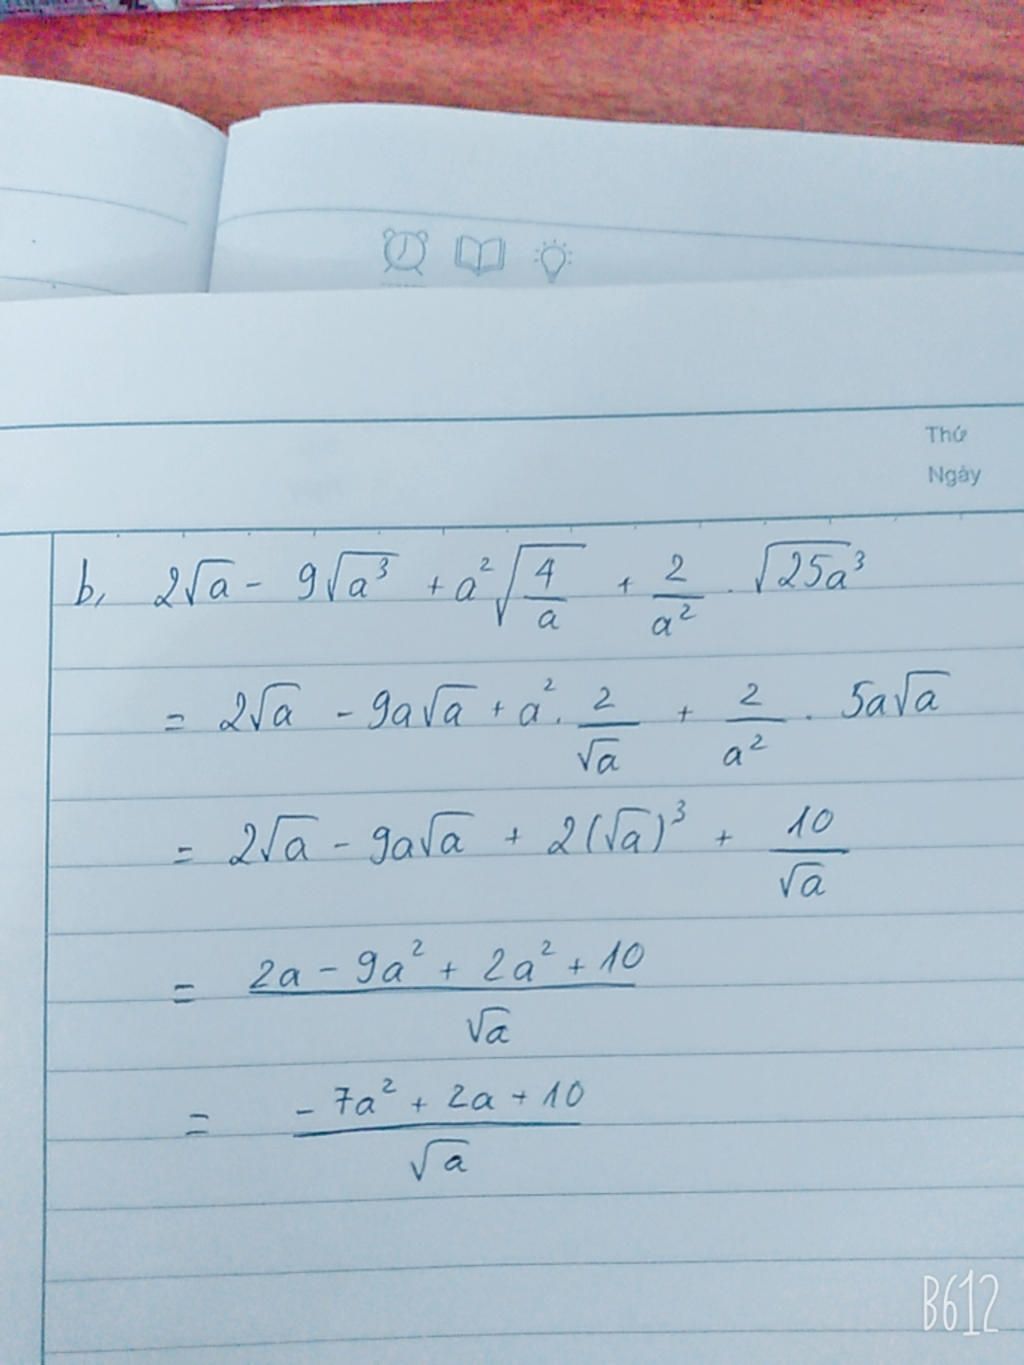 Thứ
Ngày
b, 2√a - 9√a³ + a²√(4/a) + 2/a² . √25a³
= 2√a - 9a√a + a² . 2/√a + 2/a² . 5a√a
= 2√a - 9a√a + 2(√a)³ + 10/√a
= (2a - 9a² + 2a² + 10)/√a
= (-7a² + 2a + 10)/√a
B612